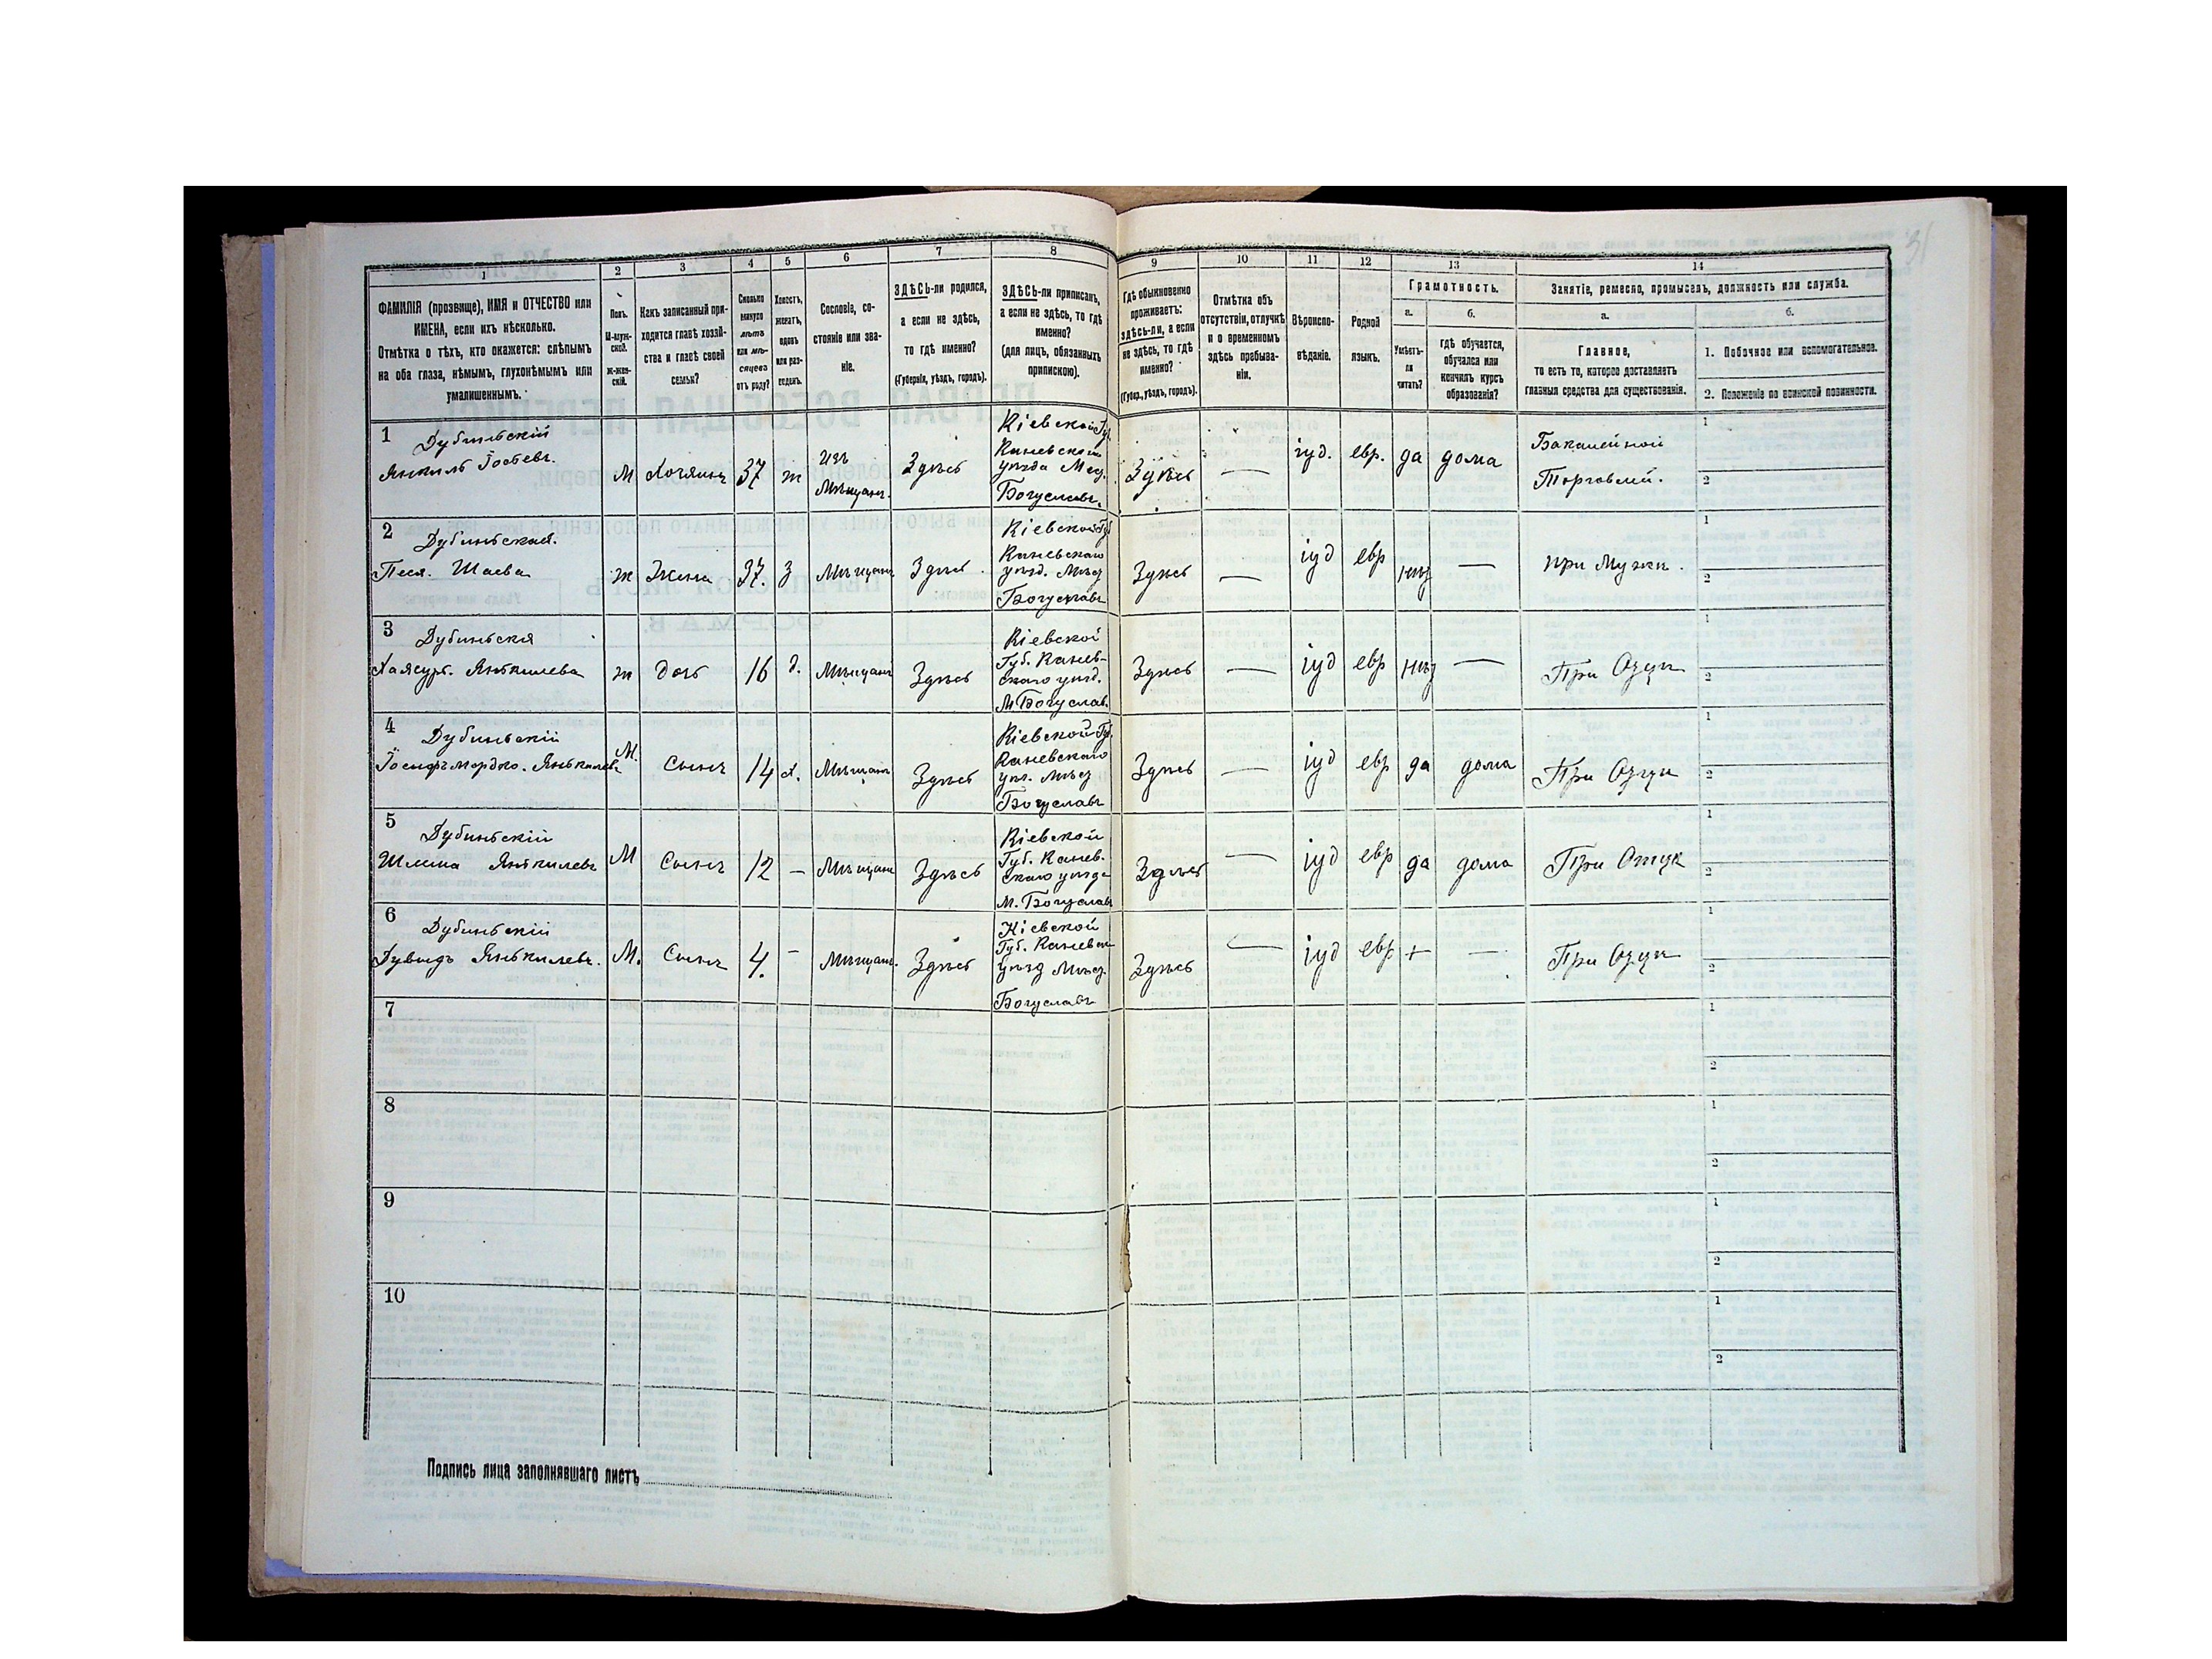 31
1 2 3 4 5 6 7 8 9 10 11 12 13 14
ФАМИЛІЯ (прозвище), ИМЯ и ОТЧЕСТВО или
ИМЕНА, если ихъ нѣсколько.
Отмѣтка о тѣхъ, кто окажется: слѣпымъ
на оба глаза, нѣмымъ, глухонѣмымъ или
умалишеннымъ.
Полъ.
М-муж-
ской.
ж-жен-
скій.
Какъ записанный при-
ходится главѣ хозяй-
ства и главѣ своей
семьи?
Сколько
минуло
лѣтъ
или мѣ-
сяцевъ
отъ роду?
Холостъ,
женатъ,
вдовъ
или раз-
веденъ.
Сословіе, со-
стояніе или зва-
ніе.
ЗДѢСЬ-ли родился,
а если не здѣсь,
то гдѣ именно?
(Губернія, уѣздъ, городъ).
ЗДѢСЬ-ли приписанъ,
а если не здѣсь, то гдѣ
именно?
(для лицъ, обязанныхъ
припискою).
Гдѣ обыкновенно
проживаетъ:
здѣсь-ли, а если
не здѣсь, то гдѣ
именно?
(Губер., уѣздъ, городъ).
Отмѣтка объ
отсутствіи, отлучкѣ
и о временномъ
здѣсь пребыва-
ніи.
Вѣроиспо-
вѣданіе.
Родной
языкъ.
Грамотность.
а.
Умѣетъ-
ли
читать?
б.
гдѣ обучается,
обучался или
кончилъ курсъ
образованія?
Занятіе, ремесло, промыселъ, должность или служба.
а.
Главное,
то есть то, которое доставляетъ
главныя средства для существованія.
б.
1. Побочное или вспомогательное.
2. Положеніе по воинской повинности.
1 Дубиньскій
Янкиль Іосевъ.
М Хозяинъ 37 ж
изъ
Мѣщанъ.
Здѣсь
Кіевской Гу.
Каневскаго
уѣзда Мес.
Богуславъ.
Здѣсь — іуд. евр. да дома
Бакалейной
Торговлей.
1
2
2 Дубиньская.
Песя. Шаева
ж Жена 37. з Мѣщанъ Здѣсь.
Кіевской Гу
Каневскаго
уѣзд. Мѣс
Богуславъ
Здѣсь — іуд евр нѣт — при Мужи.
1
2
3 Дубинься
Хаясур. Янькилева
ж дочь 16 д. Мѣщанъ Здѣсь
Кіевской
Губ. Канев-
скаго уѣзд.
М Богуслав
Здѣсь — іуд евр нѣт — При Оцѣ
1
2
4 Дубиньскій
Іосифъ мордко. Янькилевъ
М. Сынъ 14 х. Мѣщанъ Здѣсь
Кіевской Гу.
Каневскаго
уѣз. Мѣс
Богуславъ
Здѣсь — іуд евр да дома При Оцѣ
1
2
5 Дубиньскій
Шлема Янькилевъ
М Сынъ 12 — Мѣщанъ Здѣсь
Кіевской
Губ. Канев-
скаго уѣзда
М. Богуслав
Здѣсь — іуд евр да дома При Отцѣ
1
2
6 Дубиньскій
Дувидъ Янькилевъ.
М. Сынъ 4. — Мѣщанъ. Здѣсь
Кіевской
Губ. Каневск
Уѣзд Мѣс.
Богуславъ
Здѣсь — іуд евр + — При Оцѣ
1
2
7
1
2
8
1
2
9
1
2
10
1
2
Подпись лица заполнявшаго листъ